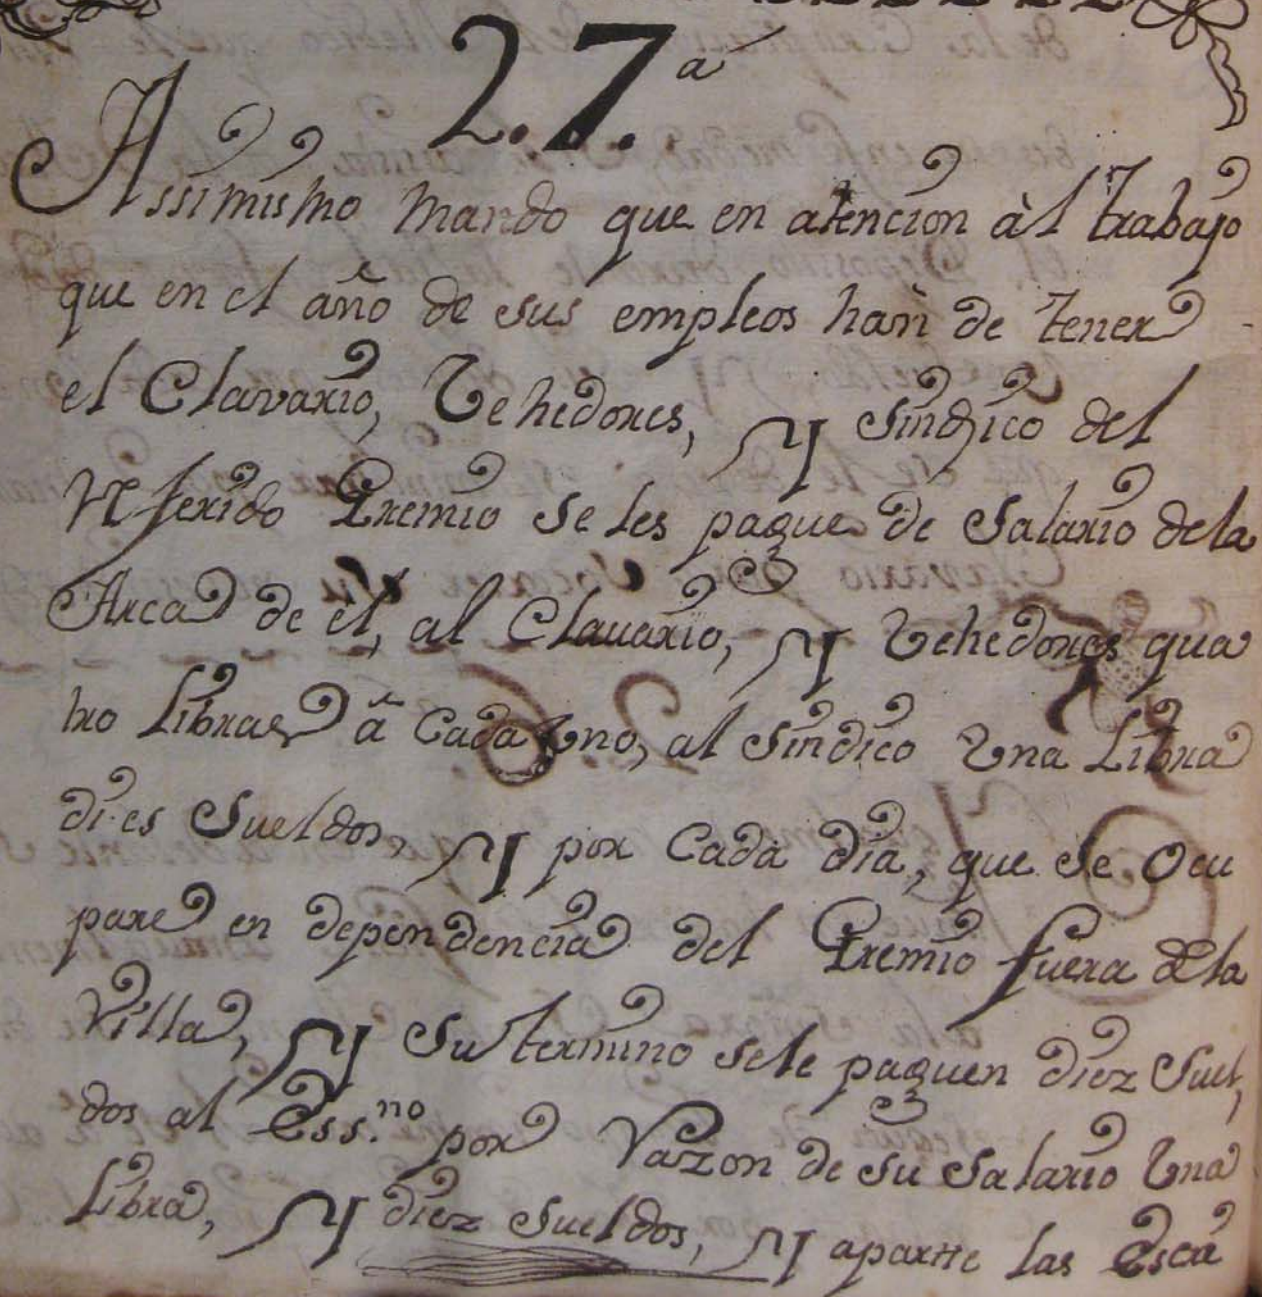 27.ª
Assimismo mando que en atencion àl trabajo
que en el año de sus empleos han de tener
el Clavario, Vehedores, y sindico del
Referido Gremio se les pague de Salario de la
Arca de el, al Clauario, y Vehedores qua
tro Libras â Cada Uno, al sindico Una Libra
dies Sueldos, y por Cada dia, que se Ocu
pare en dependencia del Gremio fuera de la
Villa, y Su termino se le paguen diez Suel,
dos al Ess.no por Razon de su Salario Una
Libra, y diez Sueldos, y aparte las Escri